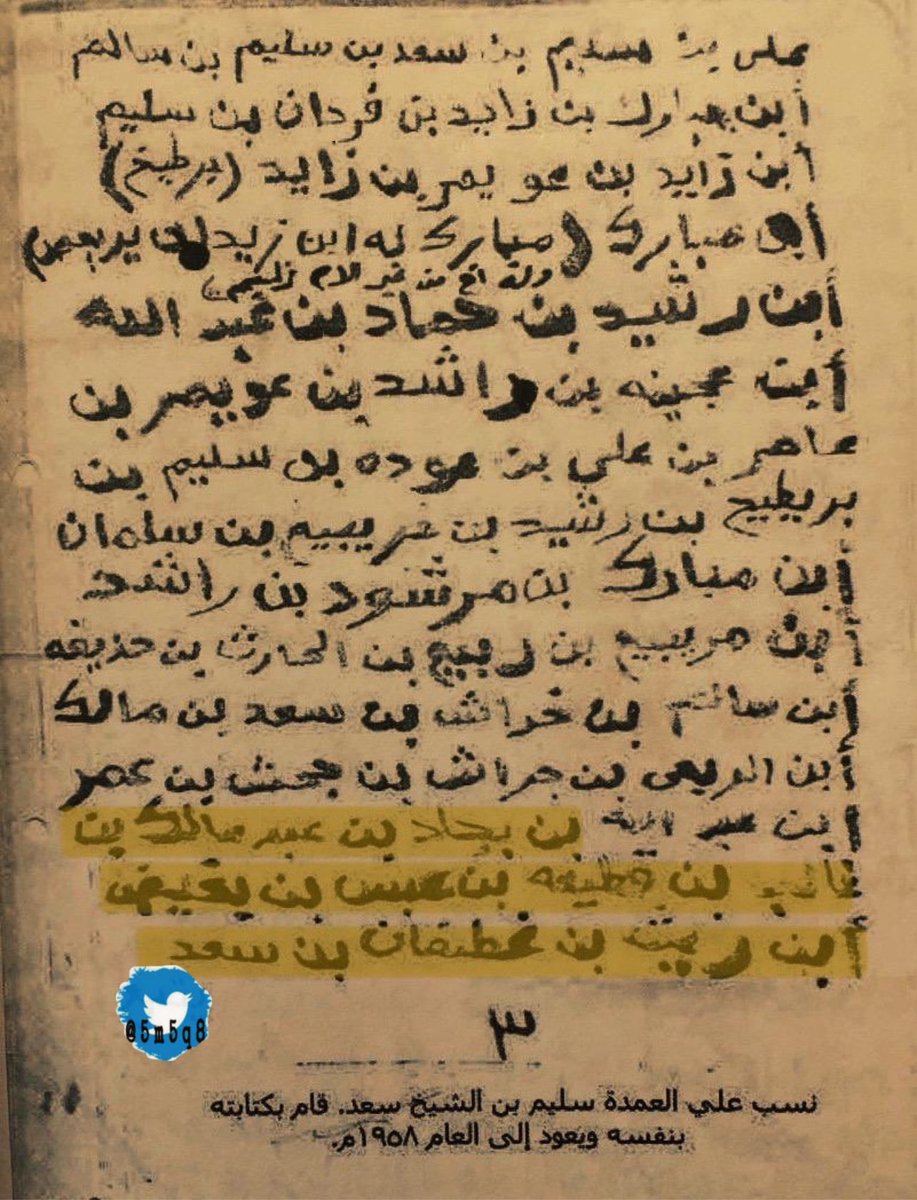 علي بن مسلم بن سعد بن سليم بن سالم
أبن مبارك بن زايد بن فردان بن سليم
أبن زايد بن عويمر بن زايد (برطيخ)
أبو مبارك (مبارك له ابن زيد لن يربعن)
وله اخ من غير الام
أبن رشيد بن حماد بن عبد الله
أبن عجينه بن راشد بن عويمر بن
عامر بن علي بن عوده بن سليم بن
بريطيخ بن رشيد بن عريبيه بن سلمان
أبن مبارك بن مرشود بن راشد
أبن مريبيع بن ربيع بن الحارث بن حذيفه
أبن سالم بن خراش بن سعد بن مالك
أبن الربعي بن جراش بن جحش بن عمر
أبن عبد الله بن بجاد بن عبد مالك بن
غالب بن قطيعه بن عبس بن بغيض
أبن ريث بن غطفان بن سعد
@5m5q8
٣
نسب علي العمدة سليم بن الشيخ سعد. قام بكتابته
بنفسه ويعود إلى العام ١٩٥٨م.